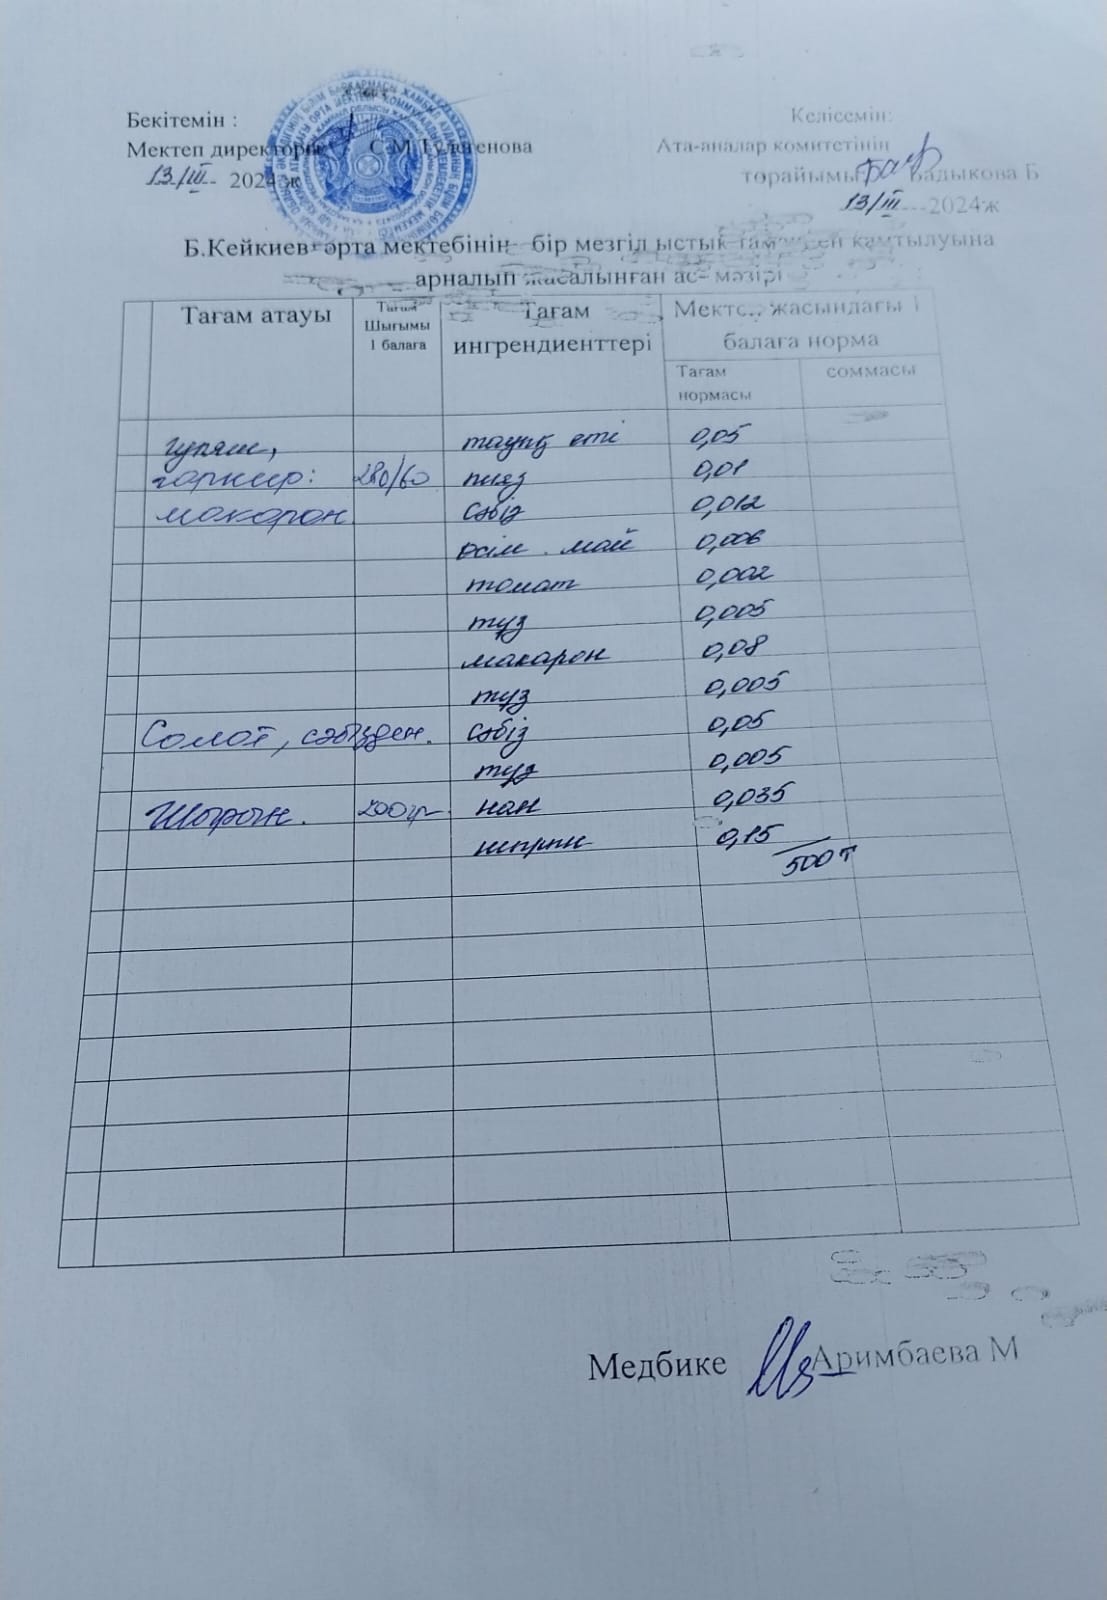 Бекітемін :
Келісемін:
Мектеп директоры С М Тулегенова
Ата-аналар комитетінің
13/III 2024ж
торайымы Бадыкова Б
13/III---2024ж
Б.Кейкиев орта мектебінің бір мезгіл ыстық тамақпен қамтылуына
арналып жасалынған ас- мәзірі
Тағам атауы
Тағам Шығымы 1 балаға
Тағам ингрендиенттері
Мектеп жасындағы 1 балаға норма
Тағам нормасы
соммасы
гуляш, тауық еті 0,05
гарнир: 280/60 пияз 0,01
макарон. сәбіз 0,012
өсім . май 0,006
томат 0,002
тұз 0,005
макарон 0,08
тұз 0,005
Солот, сәбізден. сәбіз 0,05
тұз 0,005
Шырын. 200гр. нан 0,035
шырын 0,15
500 т
Медбике Аримбаева М